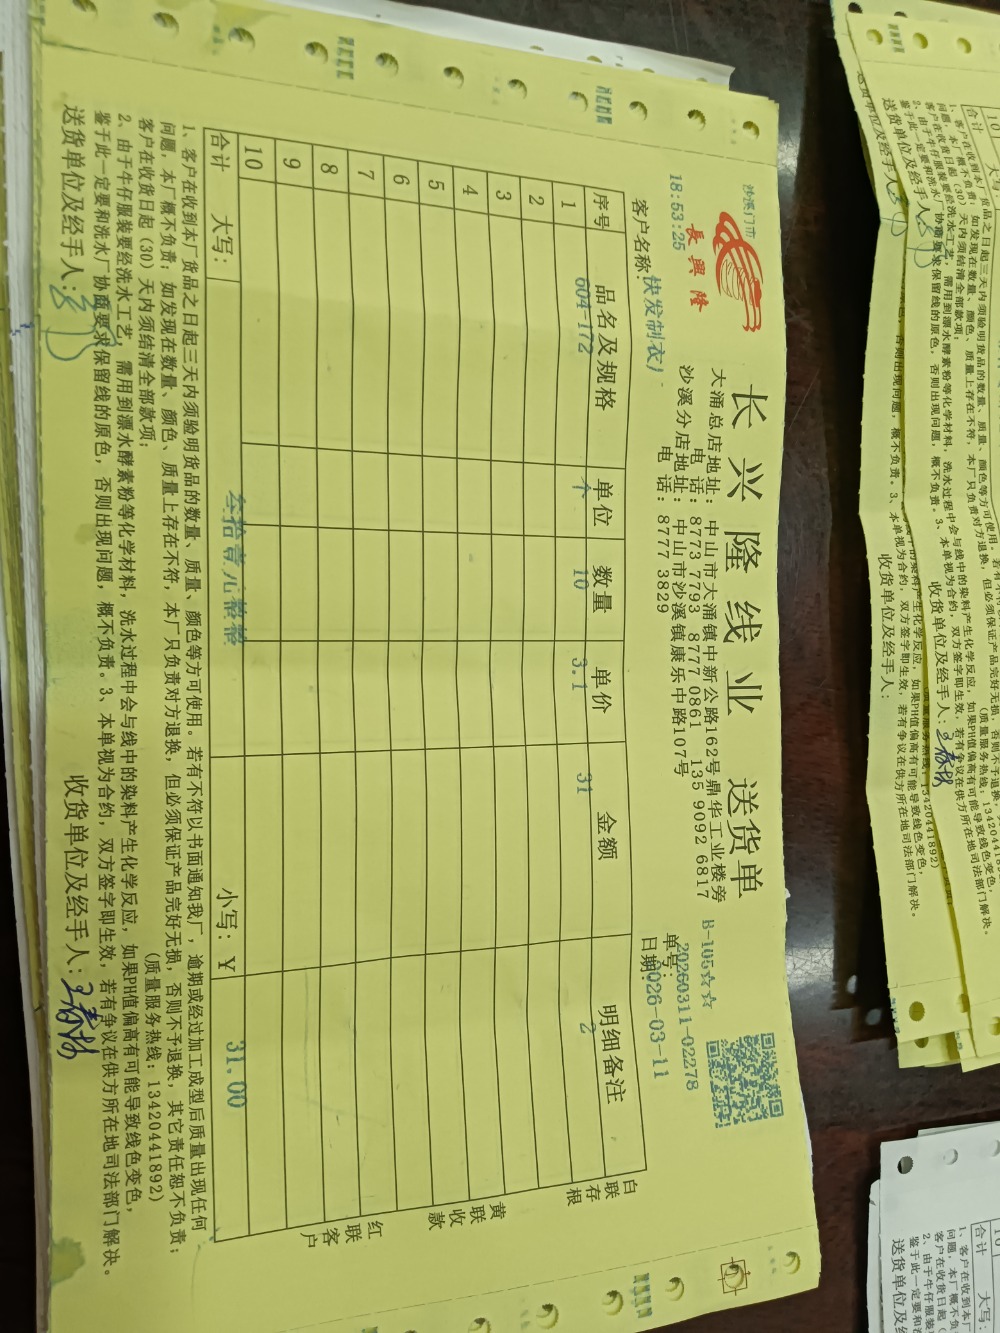 沙溪门市
長興隆
长兴隆线业 送货单
18:53:25
大涌总店地址：中山市大涌镇中新公路162号鼎华工业楼旁
电 话：8773 7793 8777 0861 135 9092 6817
沙溪分店地址：中山市沙溪镇康乐中路107号
电 话：8777 3829
B-105☆☆
单号：20260311-02278
日期：2026-03-11
客户名称：快发制衣厂
序号 品名及规格 单位 数量 单价 金额 明细备注
1 604-172 个 10 3.1 31 2
2
3
4
5
6
7
8
9
10
合计 大写： 叁拾壹元整 小写：￥ 31.00
白联存根
黄联收款
红联客户
1、客户在收到本厂货品之日起三天内须验明货品的数量、质量、颜色等方可使用。若有不符以书面通知我厂，逾期或经过加工成型后质量出现任何
问题，本厂概不负责；如发现在数量、颜色、质量上存在不符，本厂只负责对方退换，但必须保证产品完好无损，否则不予退换，其它责任恕不负责；
客户在收货日起（30）天内须结清全部款项；
(质量服务热线：13420441892)
2、由于牛仔服装要经洗水工艺，需用到漂水酵素粉等化学材料，洗水过程中会与线中的染料产生化学反应，如果PH值偏高有可能导致线色变色，
鉴于此一定要和洗水厂协商要求保留线的原色，否则出现问题，概不负责。3、本单视为合约，双方签字即生效，若有争议在供方所在地司法部门解决。
送货单位及经手人：
收货单位及经手人：王春林